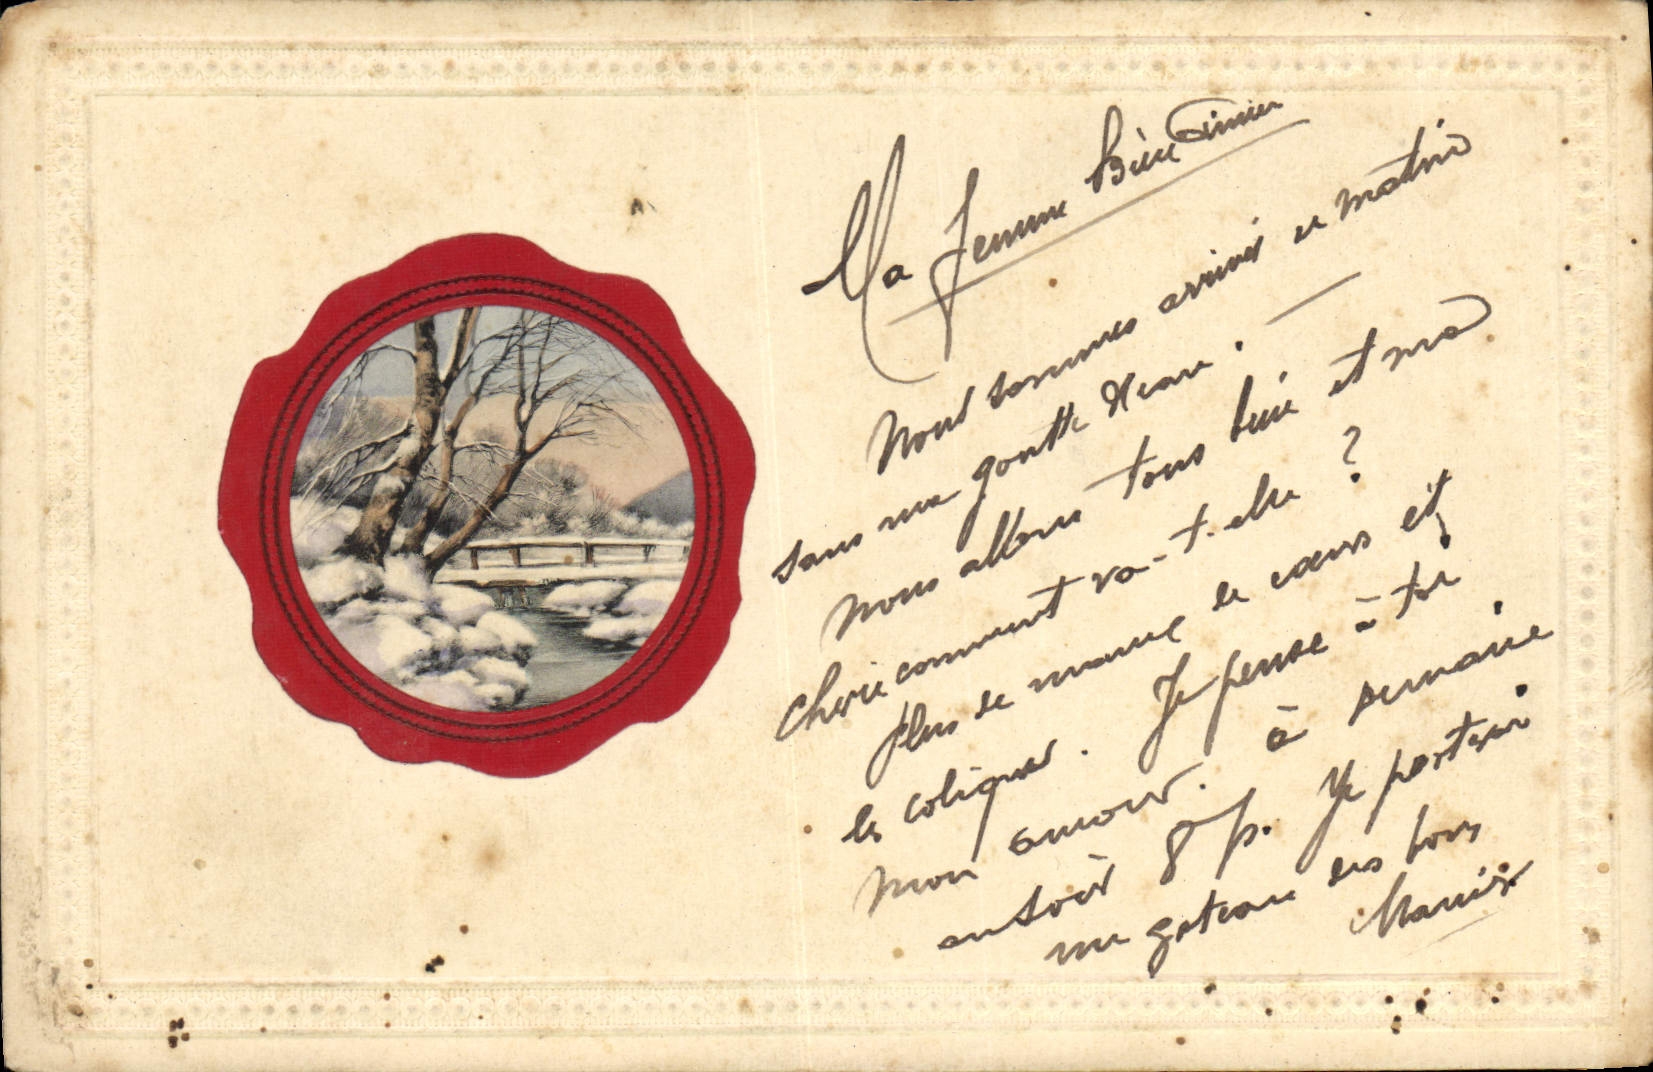 Ma femme bien aimée
Nous sommes arrivés ce matin
sans une goutte d'eau.
Nous allons tous bien et ma
chérie comment va-t-elle ?
Plus de mal de cœurs et
les coliques. Je pense à toi
mon amour. à demain
au soir 8 h. Je porterai
un gateau des bons
Maurice